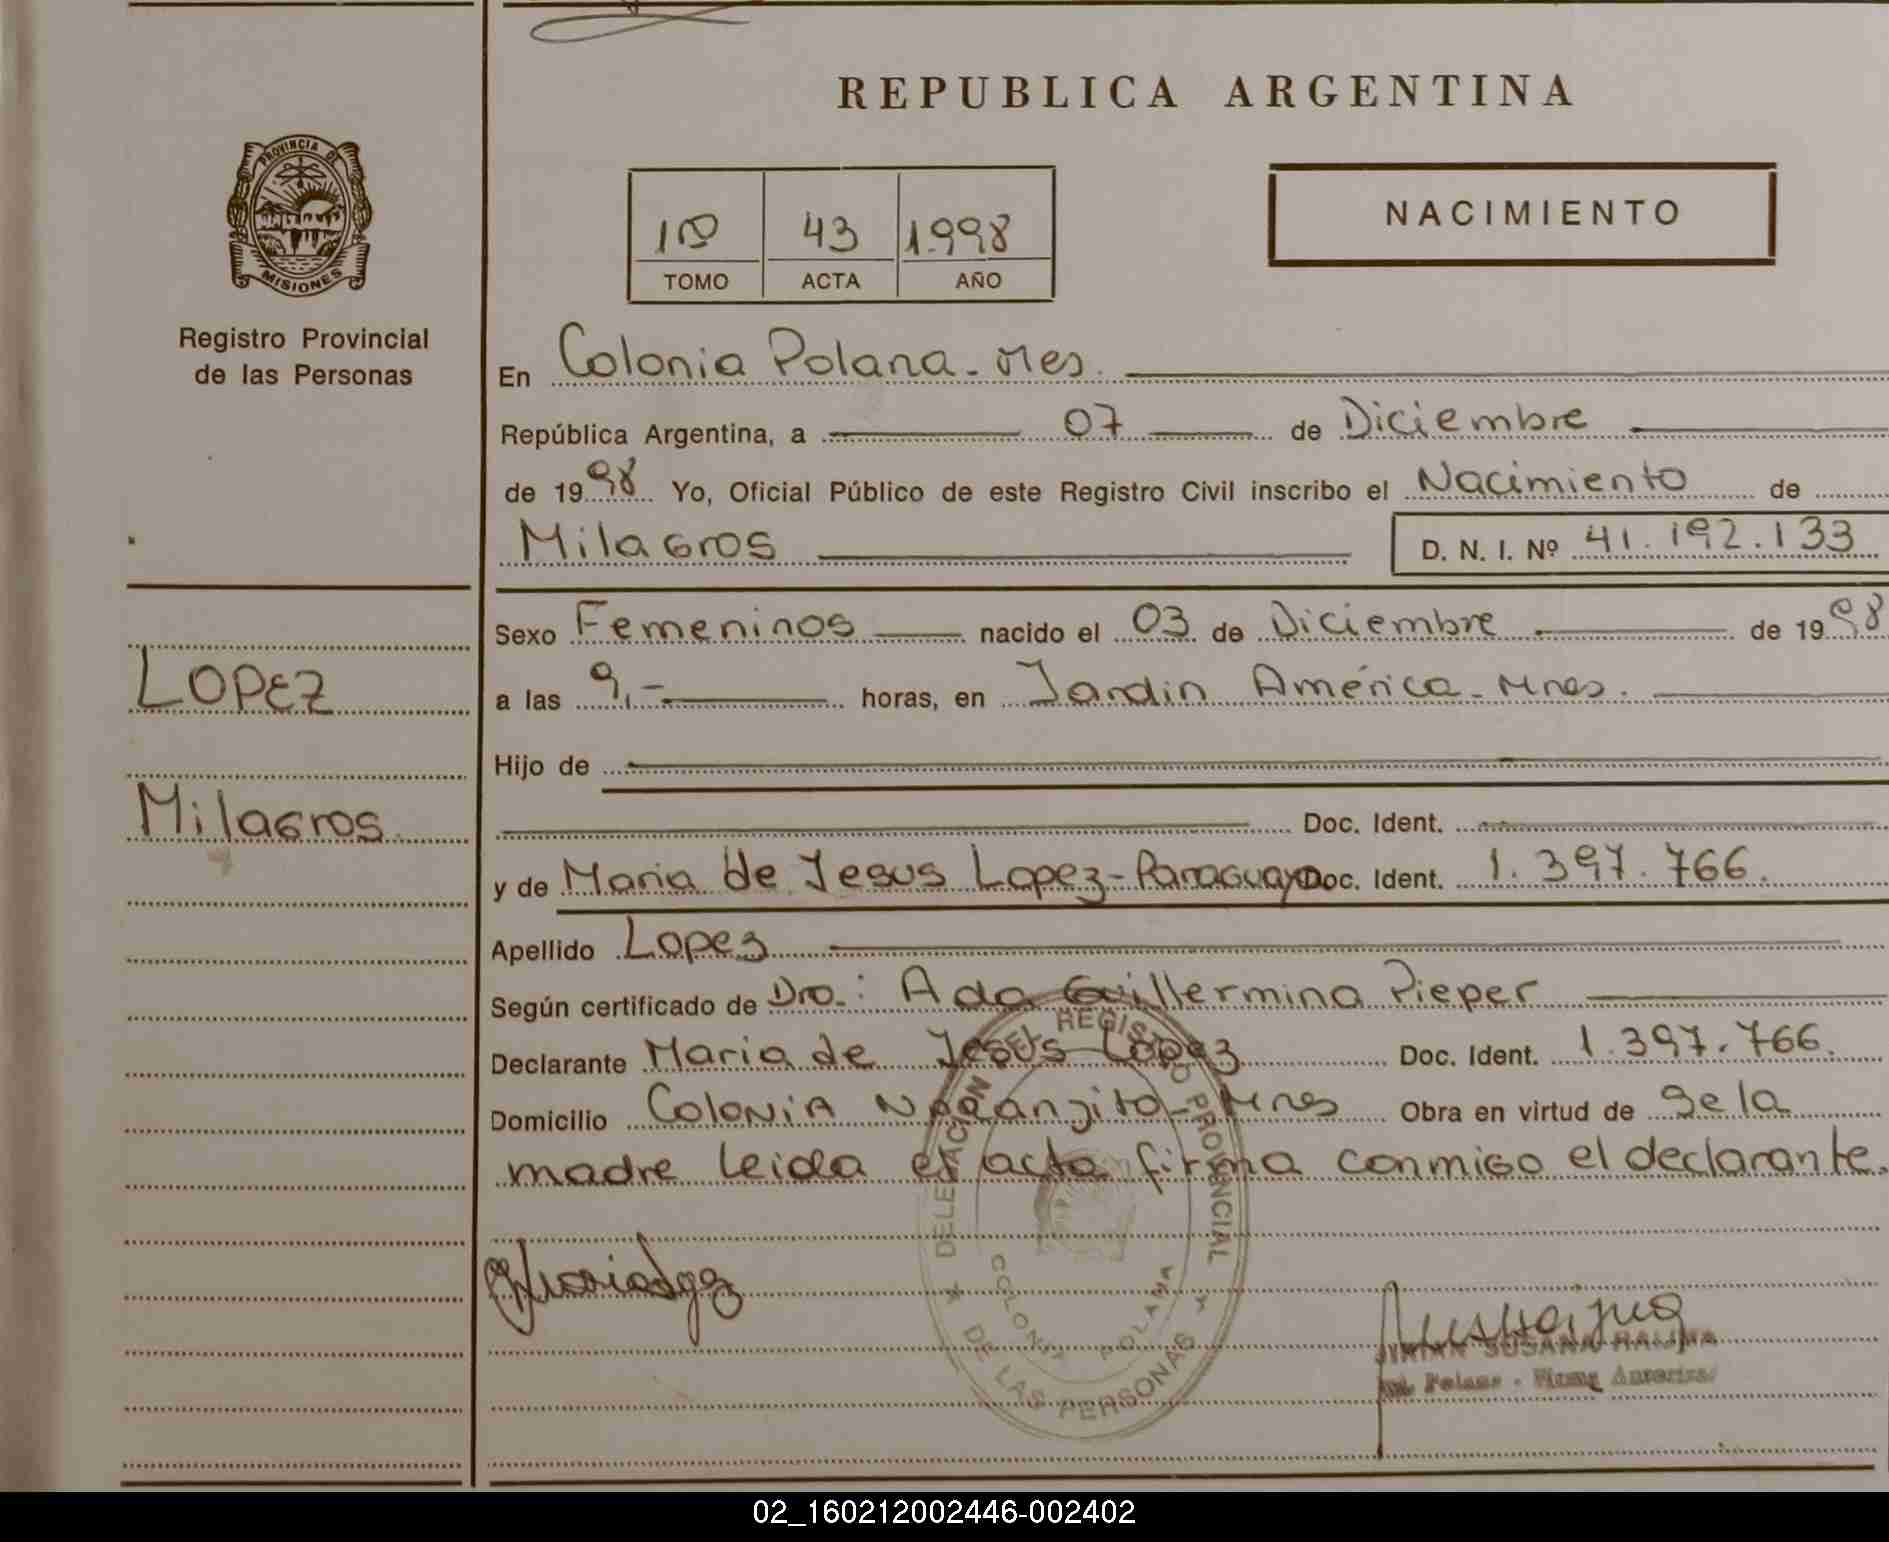 REPUBLICA ARGENTINA
PROVINCIA DE
MISIONES
Registro Provincial
de las Personas
43 1.998
TOMO ACTA AÑO
NACIMIENTO
En Colonia Polana - Mes.
República Argentina, a 07 de Diciembre
de 1998 Yo, Oficial Público de este Registro Civil inscribo el Nacimiento de
Milagros D. N. I. Nº 41.192.133
LOPEZ
Milagros
Sexo Femeninos nacido el 03 de Diciembre de 1998
a las 9,- horas, en Jardin América - Mnes.
Hijo de
Doc. Ident.
y de Maria de Jesus Lopez - Paraguaya Doc. Ident. 1.397.766.
Apellido Lopez
Según certificado de Dra.: Ada Guillermina Pieper
Declarante Maria de Jesus Lopez Doc. Ident. 1.397.766.
Domicilio Colonia Naranjito - Mnes Obra en virtud de Se la
madre leida el acta firma conmigo el declarante.
DELEGACION DEL REGISTRO PROVINCIAL
DE LAS PERSONAS
COLONIA POLANA
SUSANA
Polana - Firma Autoriza
02_160212002446-002402